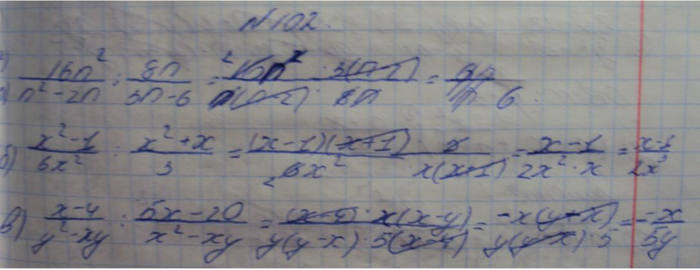 N102.
16n²/(n²-2n) : 8n/(3n-6) = 16n² · 3(n-2)/(n(n-2) · 8n) = 6
б) (x²-1)/(6x²) : (x²+x)/3 = (x-1)(x+1) 3/(6x² x(x+1)) = (x-1)/(2x²·x) = (x-1)/(2x³)
в) (x-y)/(y²-xy) : (5x-20)/(x²-xy) = (x-4)·x(x-y)/(y(y-x)·5(x-4)) = -x(y-x)/(y(y-x)·5) = -x/5y